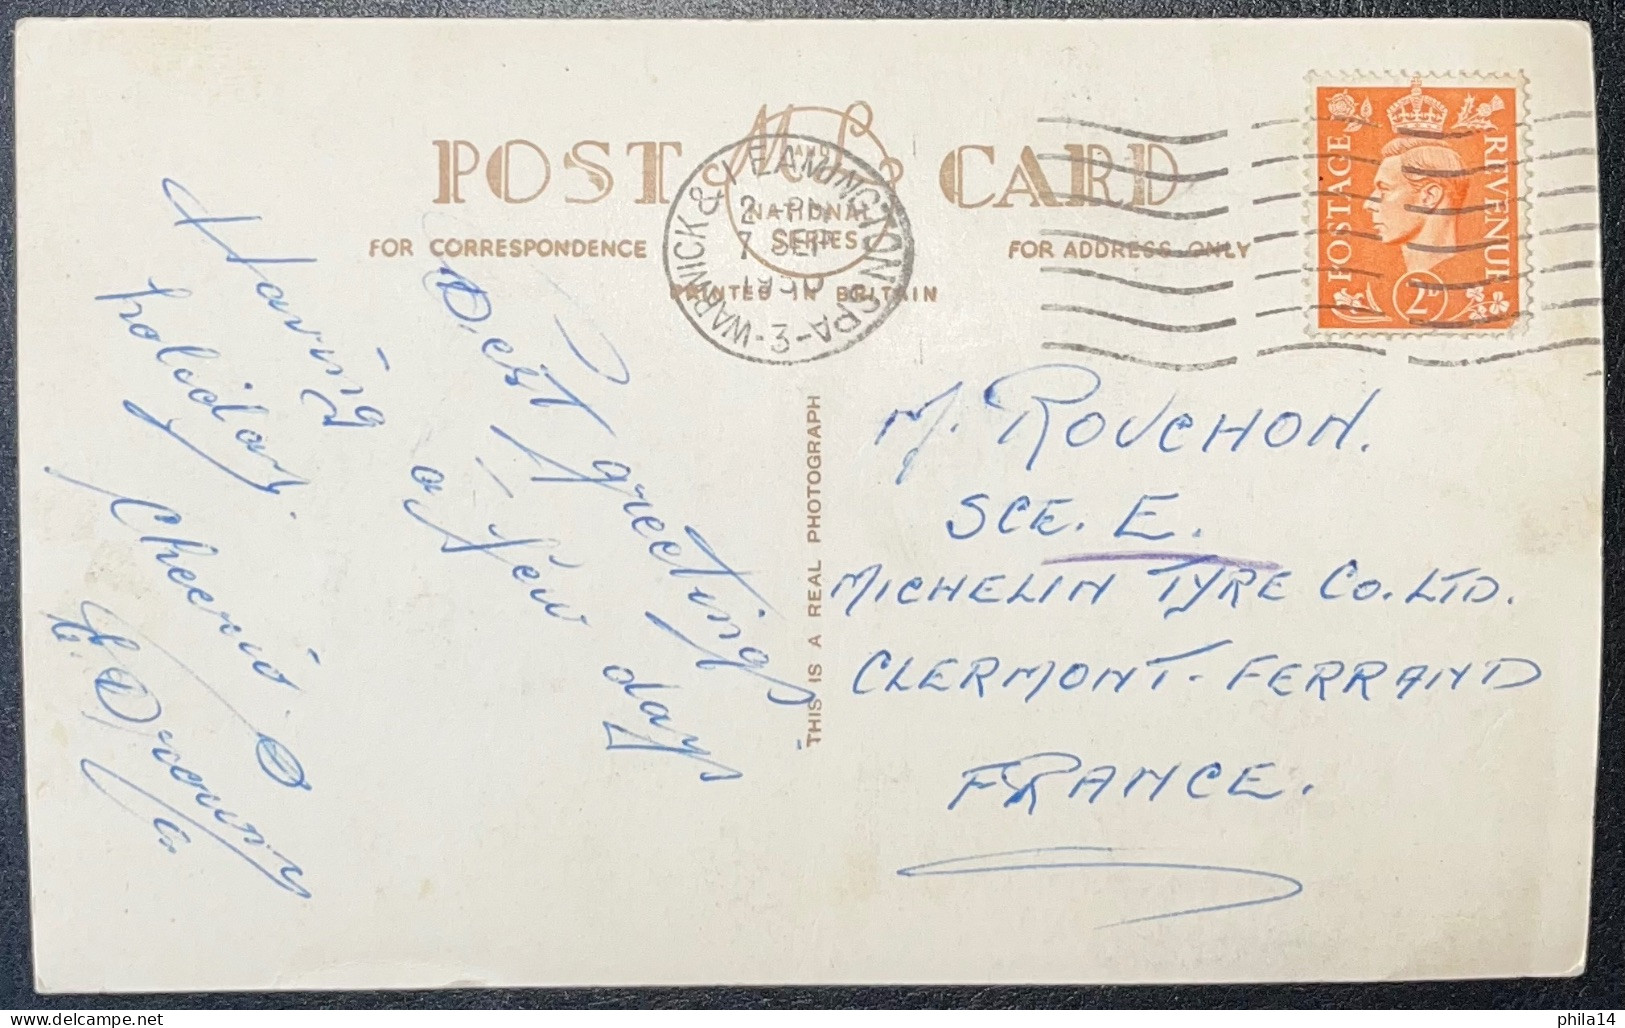 POST CARD
M AND L
NATIONAL
SERIES
FOR CORRESPONDENCE
FOR ADDRESS ONLY
PRINTED IN BRITAIN
WARWICK & LEAMINGTON SPA
2 - PM
7 SEP
1950
- 3 -
POSTAGE
REVENUE
2D
THIS IS A REAL PHOTOGRAPH
Best greetings
Having a few days
holiday.
Cheerio
M. ROUCHON.
SCE. E.
MICHELIN TYRE CO. LTD.
CLERMONT-FERRAND
FRANCE.
delcampe.net
phila14